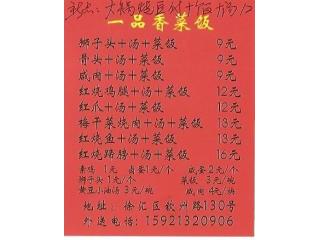 一品香菜饭
狮子头+汤+菜饭 9元
骨头+汤+菜饭 9元
咸肉+汤+菜饭 9元
红烧鸡腿+汤+菜饭 12元
红爪+汤+菜饭 12元
梅干菜烧肉+汤+菜饭 13元
红烧鱼+汤+菜饭 13元
红烧蹄髈+汤+菜饭 16元
素鸡 1元 卤蛋1元/个 咸蛋 2元/个
狮子头 1元/个 菜饭 3元/碗
黄豆小油汤 3元/碗 咸肉 4元/块
地址:徐汇区钦州路130号
外送电话:15921320906